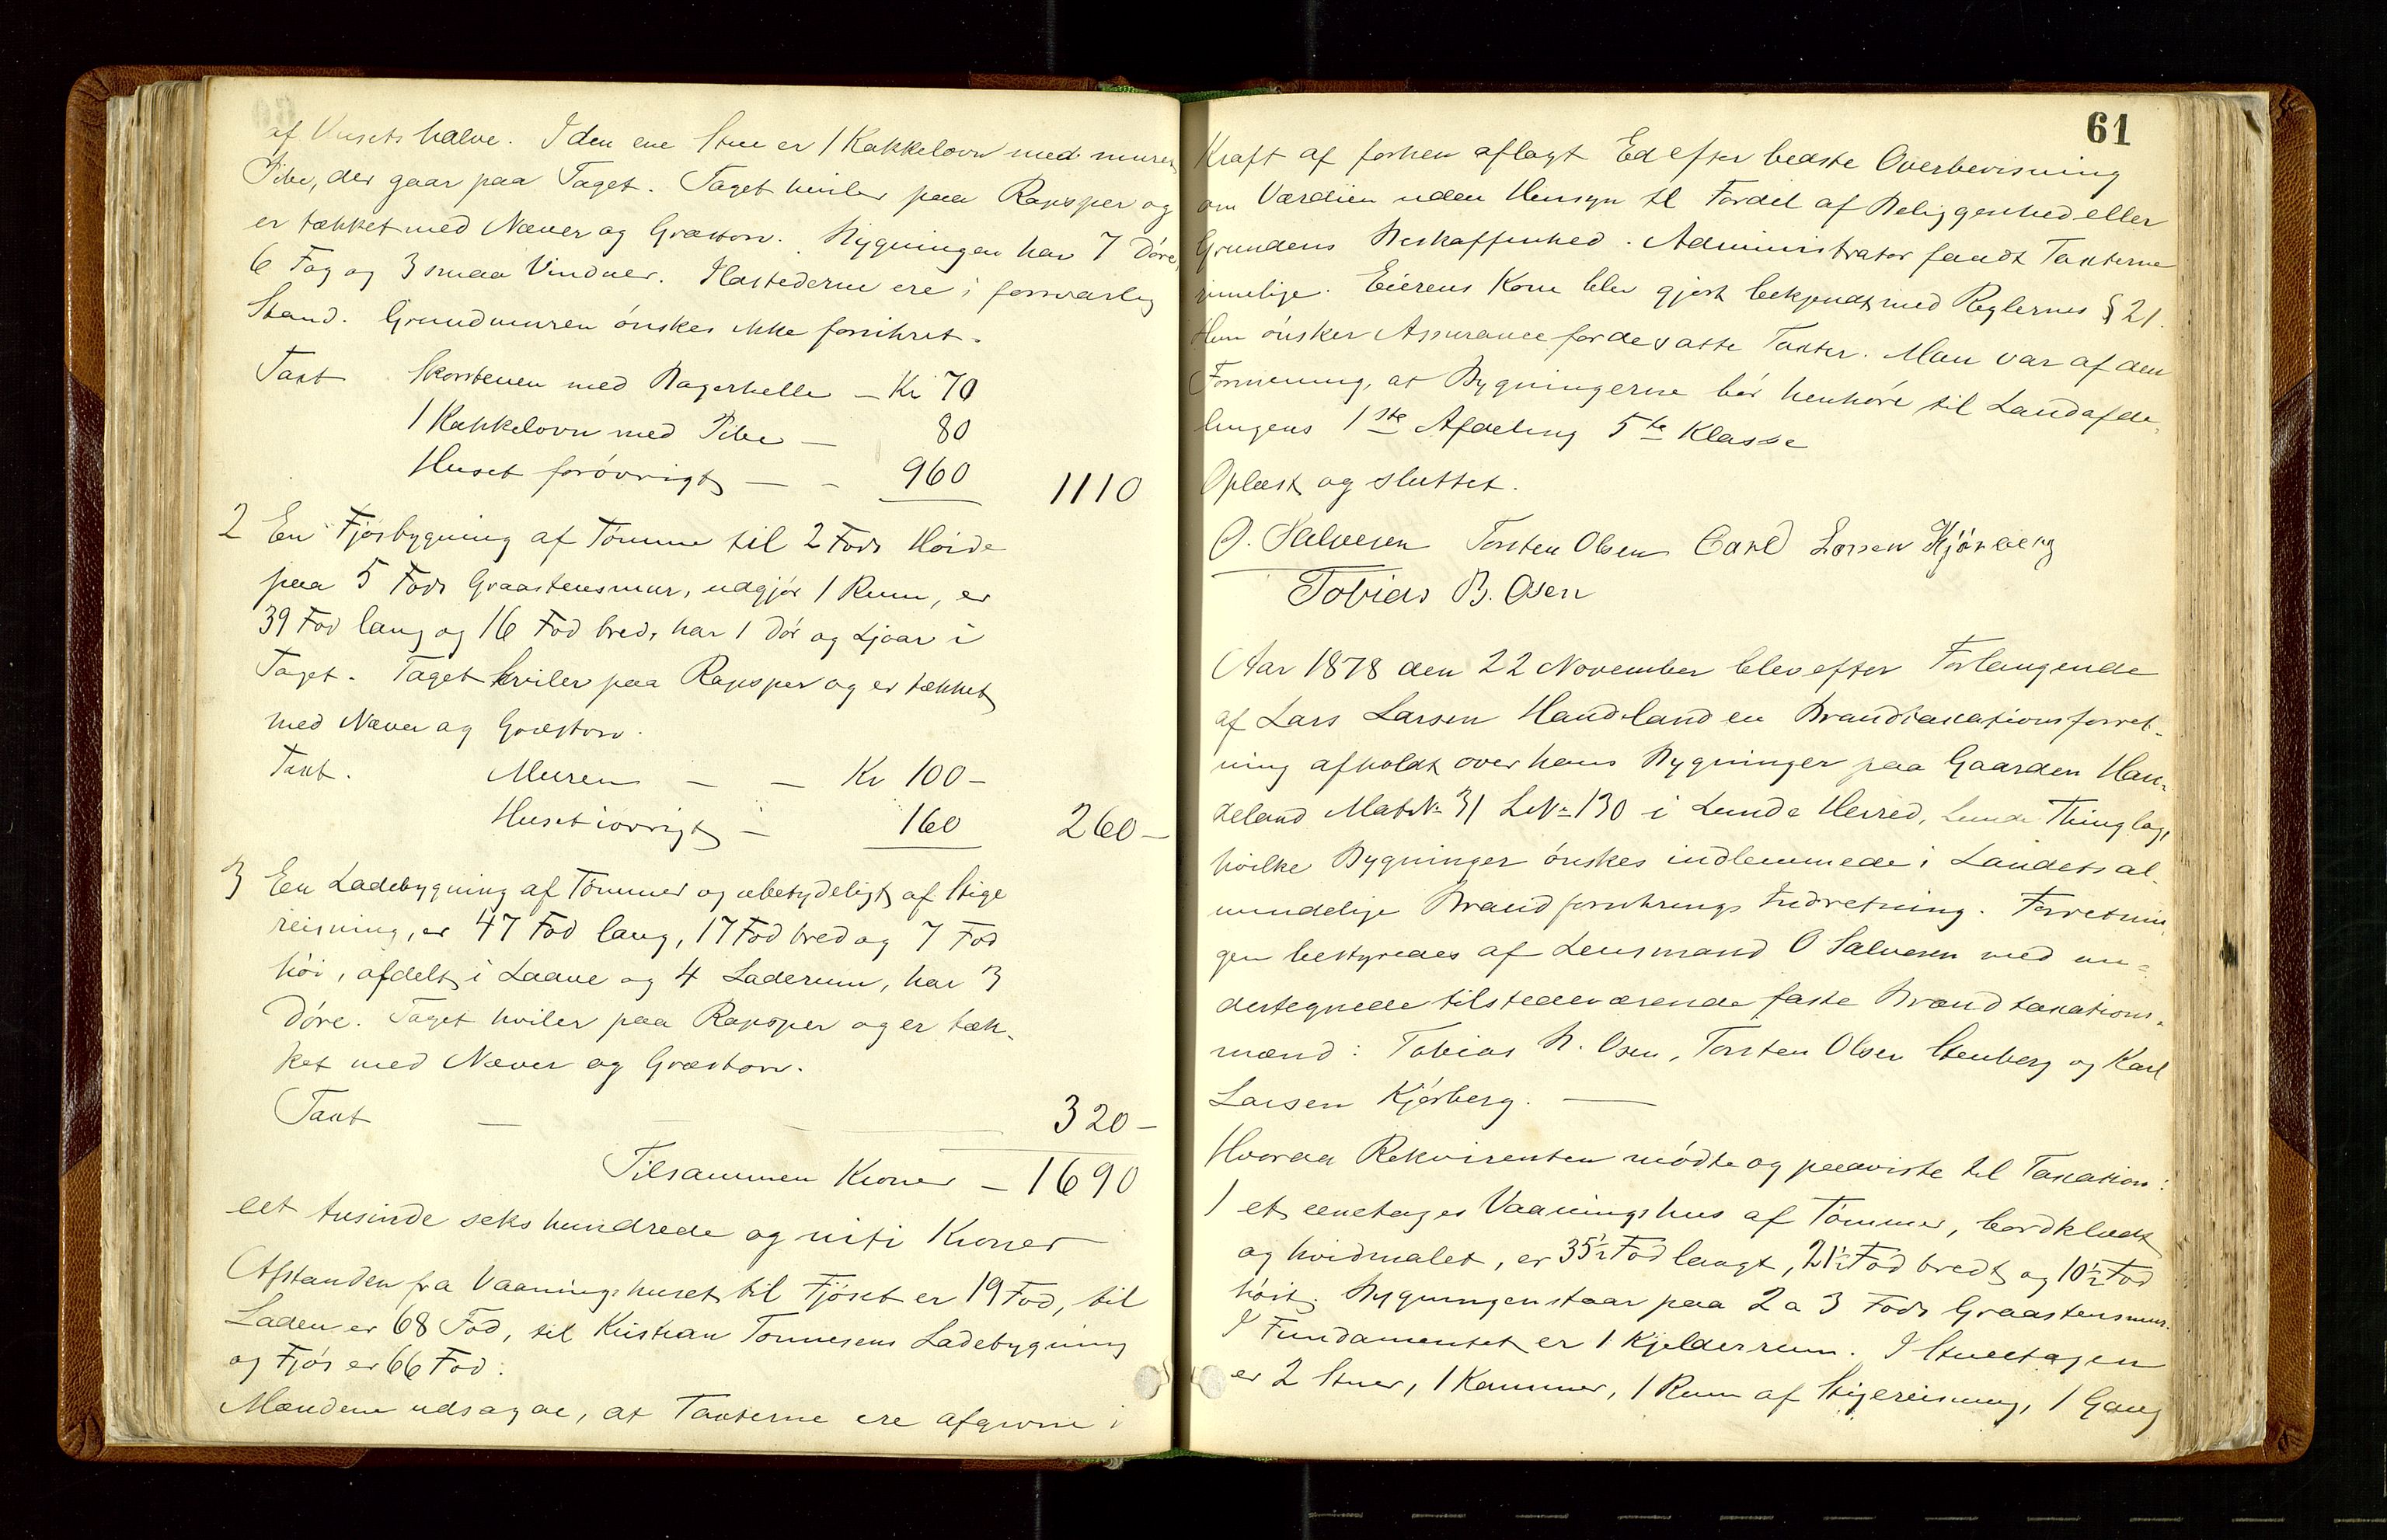 af Husets halve. I den ene Stue er 1 Kakkelovn med muret
Pibe, der gaar paa Taget. Taget hviler paa Rapsper og
er tækket med Næver og Græstorv. Bygningen har 7 Döre,
6 Fag og 3 smaa Vinduer. Ildstederne ere i forsvarlig
Stand. Grundmuren önskes ikke forsikret.
Taxt Skorstenen med Bagerhelle - Kr 70
1 Kakkelovn med Pibe - 80
Huset forövrigt - - 960 1110
2 En Fjösbygning af Tömmer til 2 Fods Höide
paa 5 Fods Graastensmur, udgjör 1 Rum, er
39 Fod lang og 16 Fod bred, har 1 Dör og Ljoar i
Taget. Taget hviler paa Rapsper og er tækket
med Næver og Græstorv.
Taxt. Muren - - Kr 100-
Huset iövrigt - 160 260-
3 En Ladebygning af Tömmer og ubetydeligt af Stige
reisning, er 47 Fod lang, 17 Fod bred og 7 Fod
höi, afdelt i Laave og 4 Laderum, har 3
Döre. Taget hviler paa Rapsper og er tæk-
ket med Næver og Græstorv.
Taxt - - - 320-
Tilsammen Kroner - 1690
eet tusinde seks hundrede og niti Kroner
Afstanden fra Vaaningshuset til Fjöset er 19 Fod, til
Laden er 68 Fod, til Kristian Tonnesens Ladebygning
og Fjös er 66 Fod.
Mændene udsagde, at Taxterne ere afgivne i
61
Kraft af forhen aflagt Ed efter bedste Overbevisning
om Værdien uden Hensyn til Fordel af Beliggenhed eller
Grundens Beskaffenhed. Administrator fandt Taxterne
rimelige. Eierens Kone blev gjort bekjendt med Reglernes § 21.
Hun önsker Assurance for de satte Taxter. Man var af den
Formening, at Bygningerne bör henhöre til Landafde-
lingens 1ste Afdeling 5te Klasse
Oplæst og sluttet.
O. Salvesen Torsten Olsen Carl Larsen Kjörberg
Tobias B. Osen
Aar 1878 den 22 November blev efter Forlangende
af Lars Larsen Handeland en Brandtaxationsforret-
ning afholdt over hans Bygninger paa Gaarden Han-
deland Mat.No 31 LNo 130 i Lunde Herred, Lunde Thinglag,
hvilke Bygninger önskes indlemmede i Landets al-
mindelige Brandforsikrings Indretning. Forretnin-
gen bestyredes af Lensmand O Salvesen med un-
dertegnede tilstedeværende faste Brandtaxations-
mænd: Tobias B. Osen, Torsten Olsen Stenberg og Karl
Larsen Kjörberg. -
Hvorda Rekvirenten mödte og paaviste til Taxation:
1 et eenetages Vaaningshus af Tömmer, bordklædt
og hvidmalet, er 35½ Fod langt, 21½ Fod bredt og 10½ Fod
höit. Bygningen staar paa 2 a 3 Fods Graastensmur.
I Fundamentet er 1 Kjelderrum. I Stueetagen
er 2 Stuer, 1 Kammer, 1 Rum af Stigereisning, 1 Gang